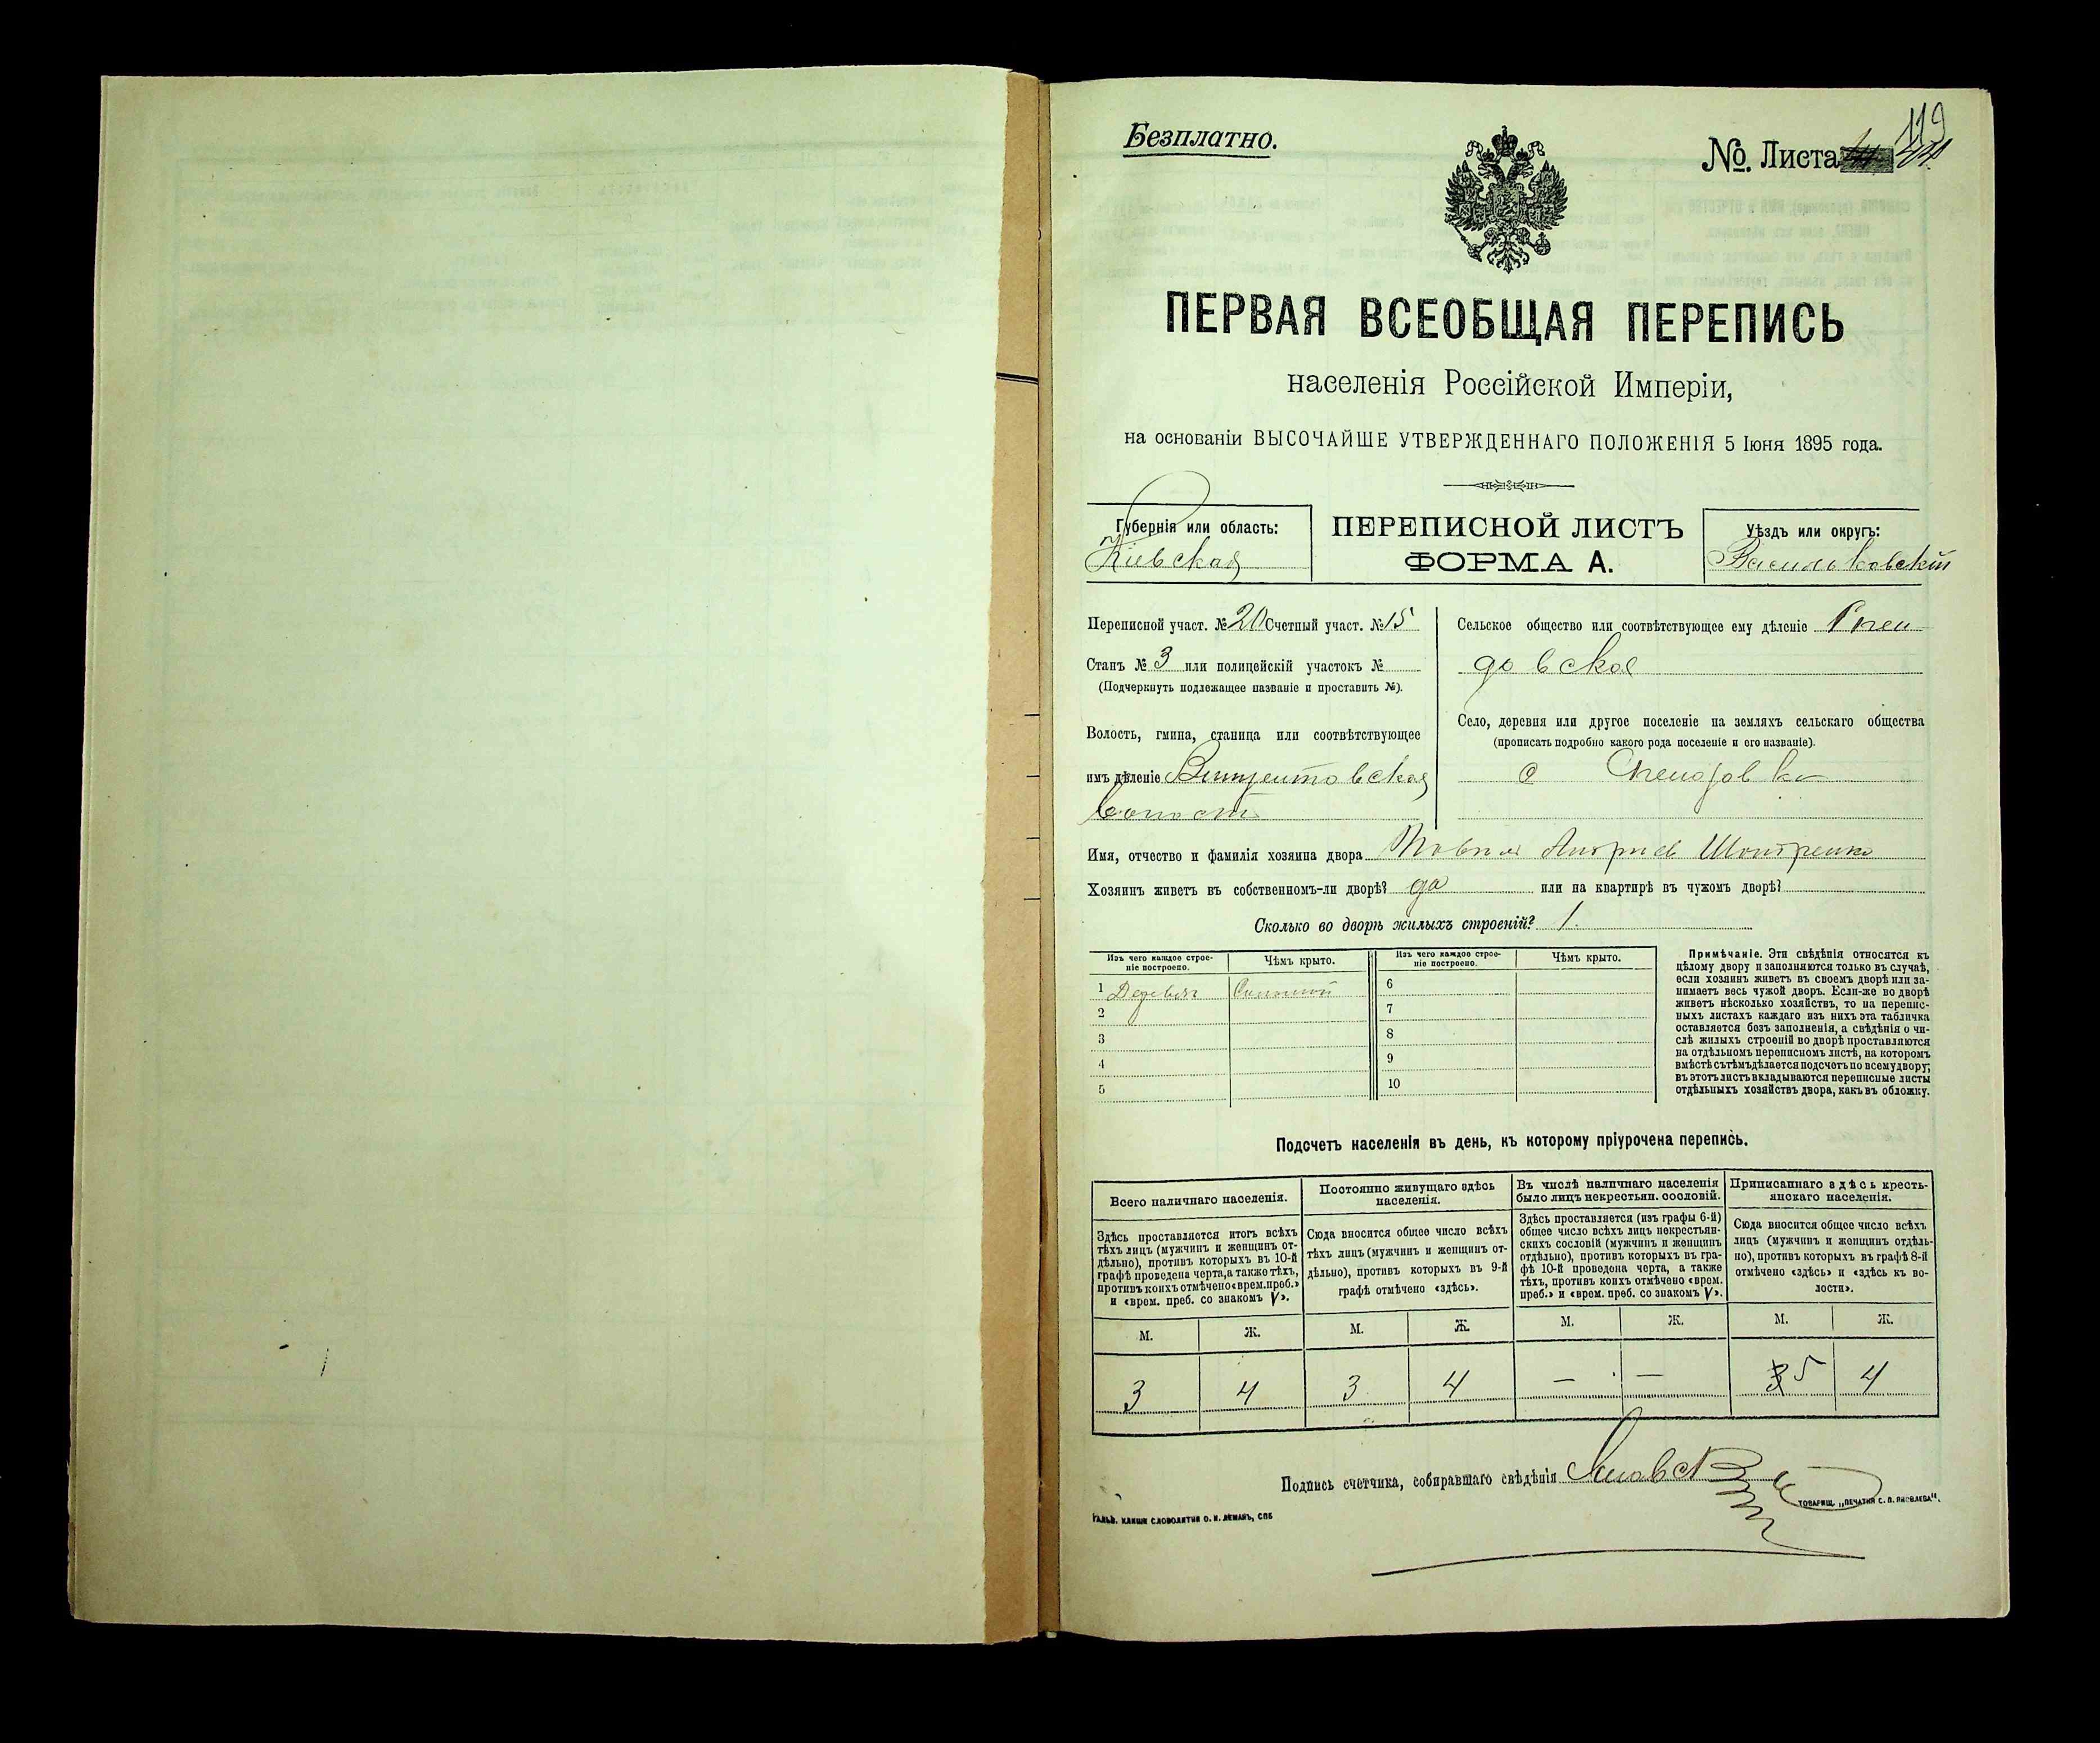 Безплатно.
№ Листа
119
ПЕРВАЯ ВСЕОБЩАЯ ПЕРЕПИСЬ
населенія Россійской Имперіи,
на основаніи ВЫСОЧАЙШЕ УТВЕРЖДЕННАГО ПОЛОЖЕНІЯ 5 Іюня 1895 года.
Губернія или область:
Кіевская
ПЕРЕПИСНОЙ ЛИСТЪ
ФОРМА А.
Уѣздъ или округъ:
Васильковскій
Переписной участ. № 20 Счетный участ. № 15
Станъ № 3 или полицейскій участокъ №
(Подчеркнуть подлежащее названіе и проставить №).
Волость, гмина, станица или соотвѣтствующее
имъ дѣленіе Винцентовская
волость
Сельское общество или соотвѣтствующее ему дѣленіе
довское
Село, деревня или другое поселеніе на земляхъ сельскаго общества
(прописать подробно какого рода поселеніе и его названіе).
с
Имя, отчество и фамилія хозяина двора
Хозяинъ живетъ въ собственномъ-ли дворѣ? да или на квартирѣ въ чужомъ дворѣ?
Сколько во дворѣ жилыхъ строеній? 1.
Изъ чего каждое строеніе построено. Чѣмъ крыто. Изъ чего каждое строеніе построено. Чѣмъ крыто.
1 Дерев. Соломой 6
2 7
3 8
4 9
5 10
Примѣчаніе. Эти свѣдѣнія относятся къ
цѣлому двору и заполняются только въ случаѣ,
если хозяинъ живетъ въ своемъ дворѣ или за-
нимаетъ весь чужой дворъ. Если-же во дворѣ
живетъ нѣсколько хозяйствъ, то на перепис-
ныхъ листахъ каждаго изъ нихъ эта табличка
оставляется безъ заполненія, а свѣдѣнія о чи-
слѣ жилыхъ строеній во дворѣ проставляются
на отдѣльномъ переписномъ листѣ, на которомъ
вмѣстѣ съ тѣмъ дѣлается подсчетъ по всему двору;
въ этотъ листъ вкладываются переписные листы
отдѣльныхъ хозяйствъ двора, какъ въ обложку.
Подсчетъ населенія въ день, къ которому пріурочена перепись.
Всего наличнаго населенія.
Здѣсь проставляется итогъ всѣхъ
тѣхъ лицъ (мужчинъ и женщинъ от-
дѣльно), противъ которыхъ въ 10-й
графѣ проведена черта, а также тѣхъ,
противъ коихъ отмѣчено «врем. преб.»
и «врем. преб. со знакомъ V».
Постоянно живущаго здѣсь
населенія.
Сюда вносится общее число всѣхъ
тѣхъ лицъ (мужчинъ и женщинъ от-
дѣльно), противъ которыхъ въ 9-й
графѣ отмѣчено «здѣсь».
Въ числѣ наличнаго населенія
было лицъ некрестьян. сословій.
Здѣсь проставляется (изъ графы 6-й)
общее число всѣхъ лицъ некрестьян-
скихъ сословій (мужчинъ и женщинъ
отдѣльно), противъ которыхъ въ гра-
фѣ 10-й проведена черта, а также
тѣхъ, противъ коихъ отмѣчено «врем.
преб.» и «врем. преб. со знакомъ V».
Приписаннаго здѣсь кресть-
янскаго населенія.
Сюда вносится общее число всѣхъ
лицъ (мужчинъ и женщинъ отдѣль-
но), противъ которыхъ въ графѣ 8-й
отмѣчено «здѣсь» и «здѣсь къ во-
лости».
М. Ж. М. Ж. М. Ж. М. Ж.
3 4 3 4 — — 5 4
Подпись счетчика, собиравшаго свѣдѣнія
ГАЛЬВ. КЛИШЕ СЛОВОЛИТНИ О. И. ЛЕМАНЪ, СПБ
ТОВАРИЩ. „ПЕЧАТНЯ С. П. ЯКОВЛЕВА".